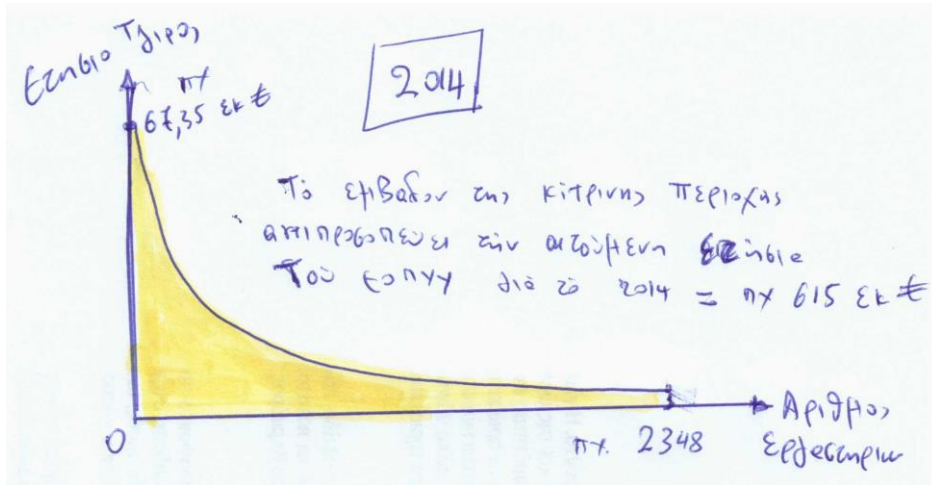 Ετήσιο Τζίρος
πχ
67,35 εκ €
2014
Το εμβαδον της κίτρινης περιοχας
αντιπροσοπεύει την αιτούμενη
Του εοπυυ διά το 2014 = πχ 615 εκ €
0
πχ. 2348
Αριθμος
Εργαστηριων